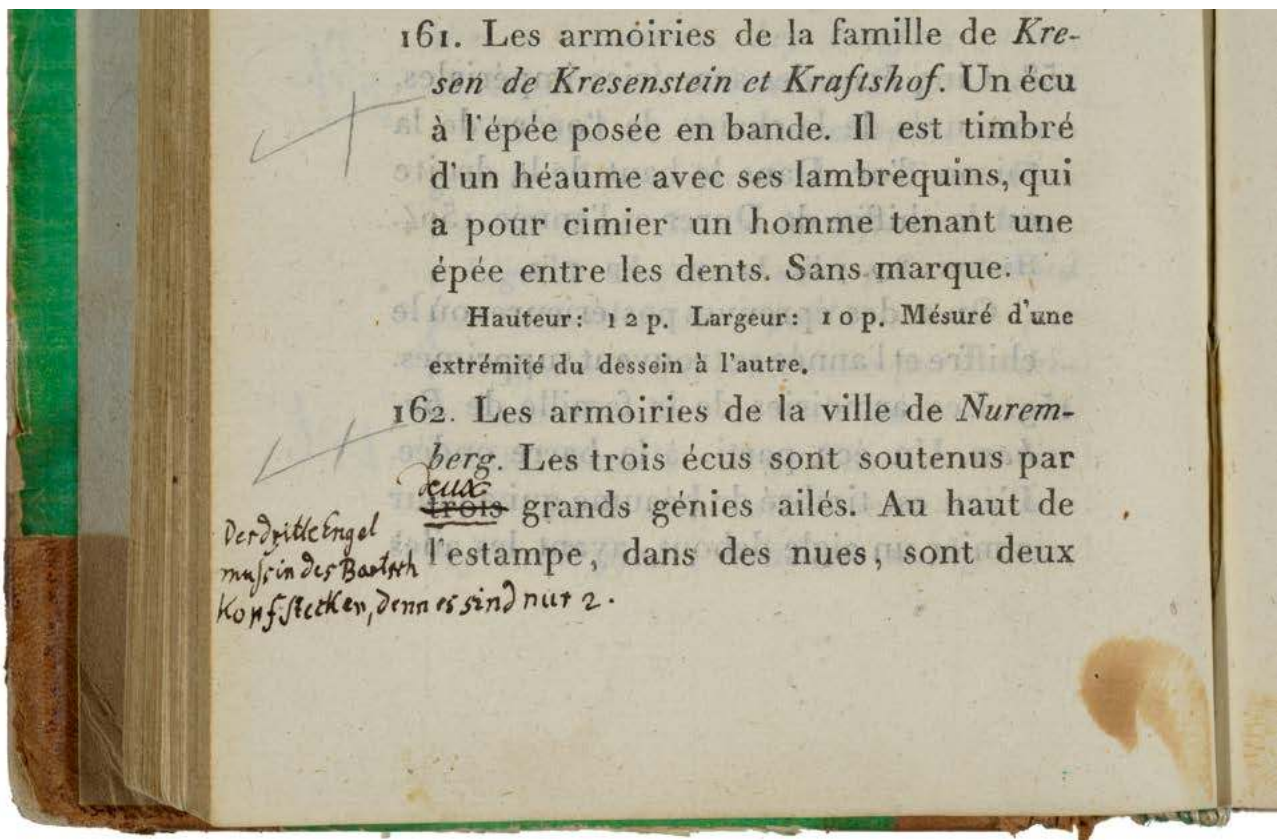 161. Les armoiries de la famille de Kre-
sen de Kresenstein et Kraftshof. Un écu
à l'épée posée en bande. Il est timbré
d'un héaume avec ses lambrequins, qui
a pour cimier un homme tenant une
épée entre les dents. Sans marque.
Hauteur: 12 p. Largeur: 10 p. Mésuré d'une
extrémité du dessein à l'autre.
162. Les armoiries de la ville de Nurem-
berg. Les trois écus sont soutenus par
deux
trois grands génies ailés. Au haut de
l'estampe, dans des nues, sont deux
Der dritte Engel
muss in des Bartsch
Kopf stecken, denn es sind nur 2.